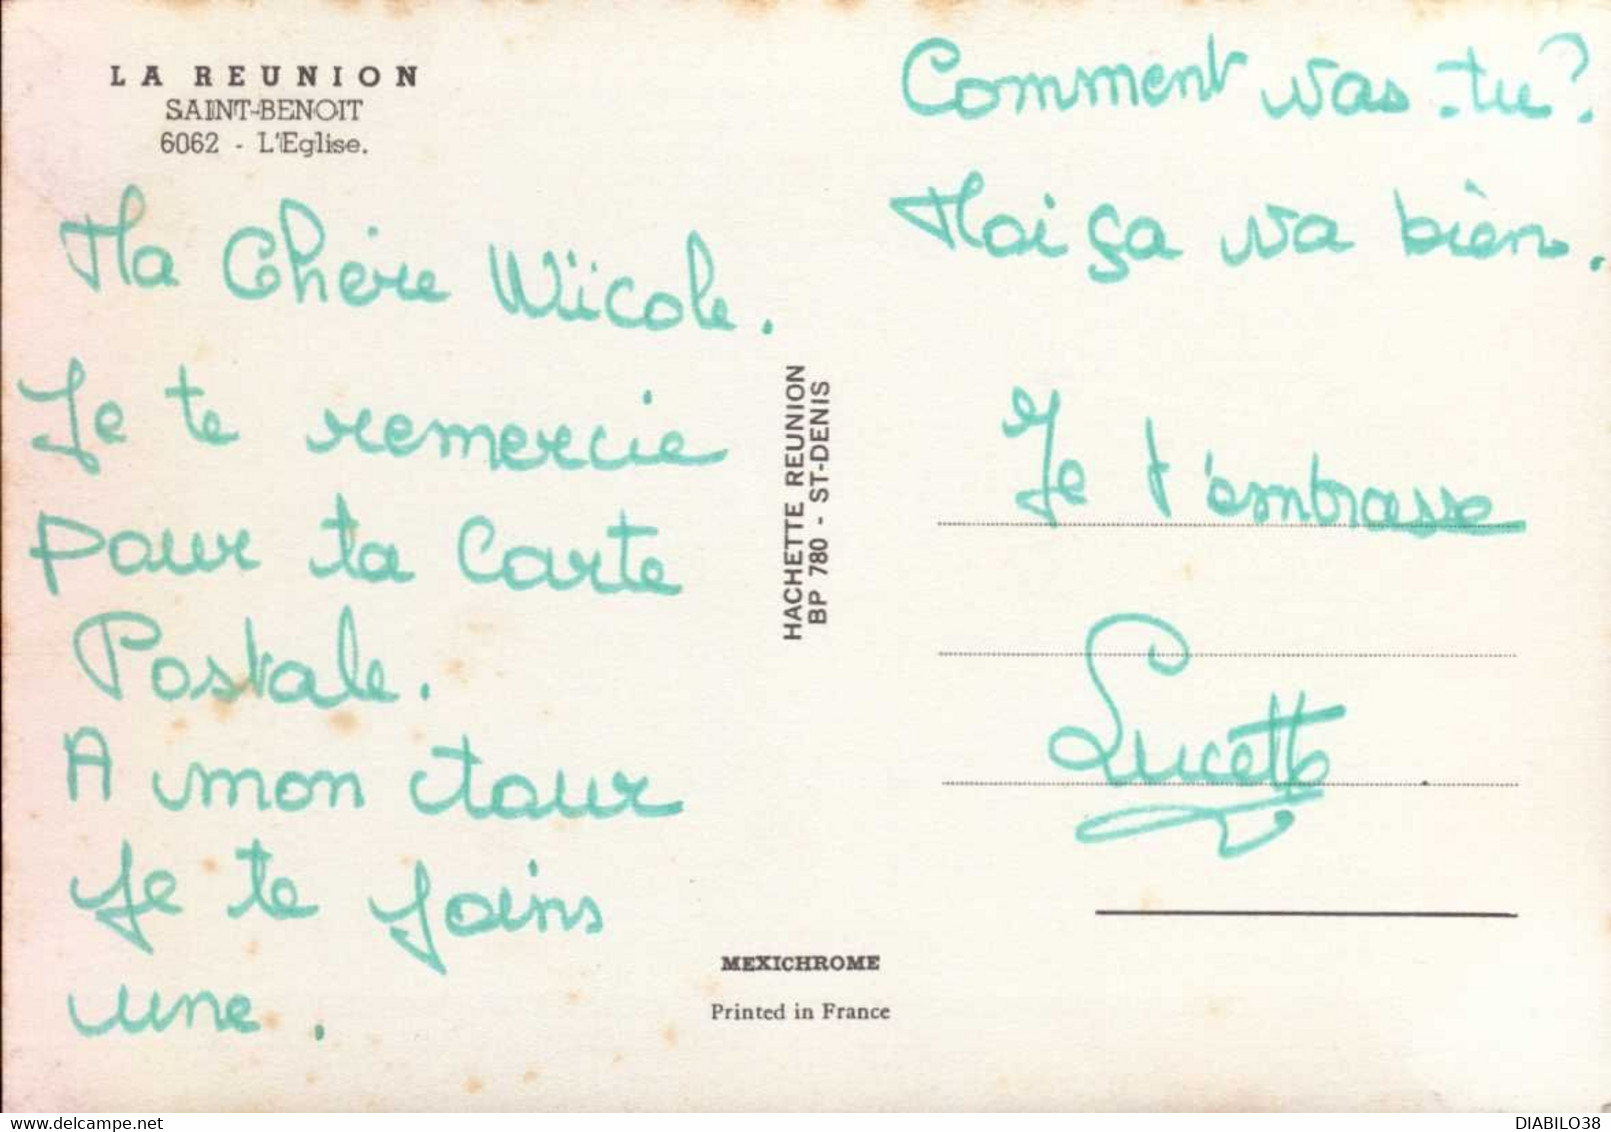 LA REUNION
SAINT-BENOIT
6062 - L'Eglise.
Ma Chère Niicole.
Je te remercie
pour ta Carte
Postale.
A mon tour
Je te joins
une.
HACHETTE REUNION
BP 780 - ST-DENIS
MEXICHROME
Printed in France
Comment vas-tu?.
Moi ça va bien.
Je t'embrasse
Lucette
DIABILO38